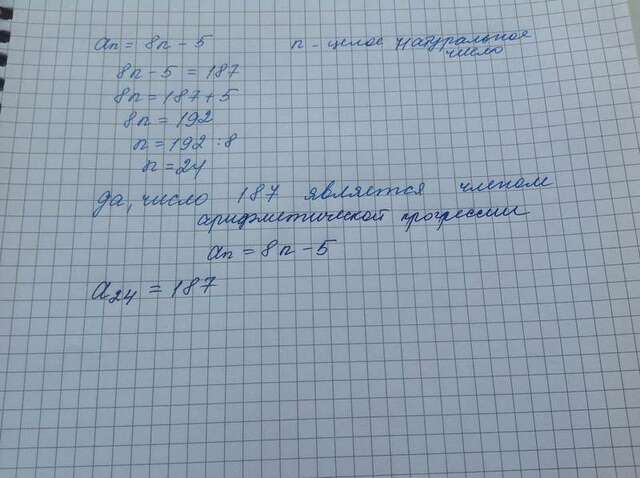 an = 8n - 5 n - целое натуральное
число
8n - 5 = 187
8n = 187 + 5
8n = 192
n = 192 : 8
n = 24
да, число 187 является членом
арифметической прогрессии
an = 8n - 5
a24 = 187